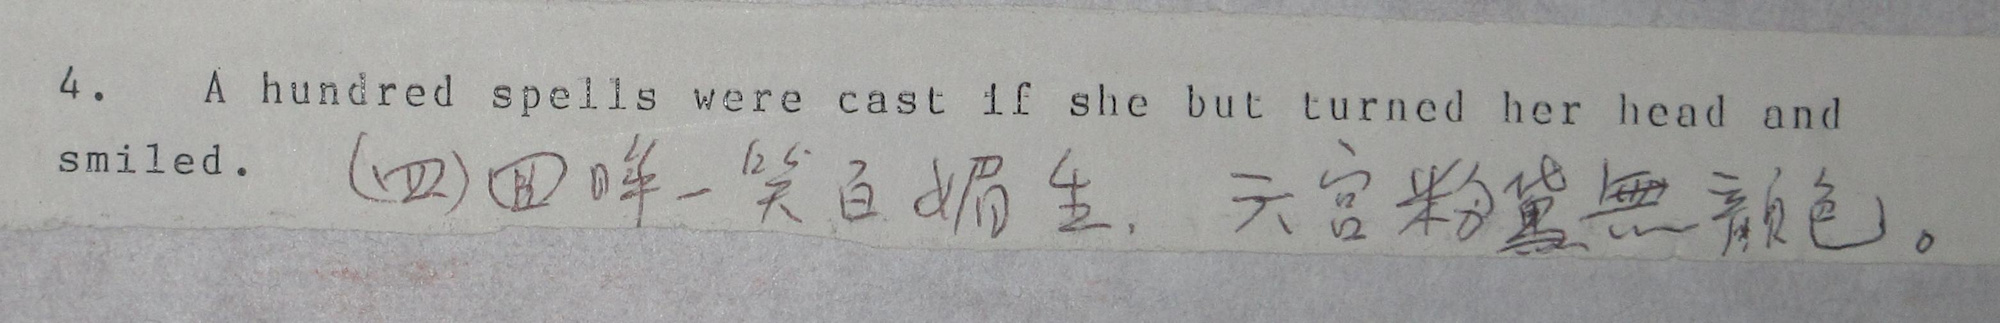 4. A hundred spells were cast if she but turned her head and
smiled. (四)回眸一笑百媚生. 六宮粉黛無顏色。